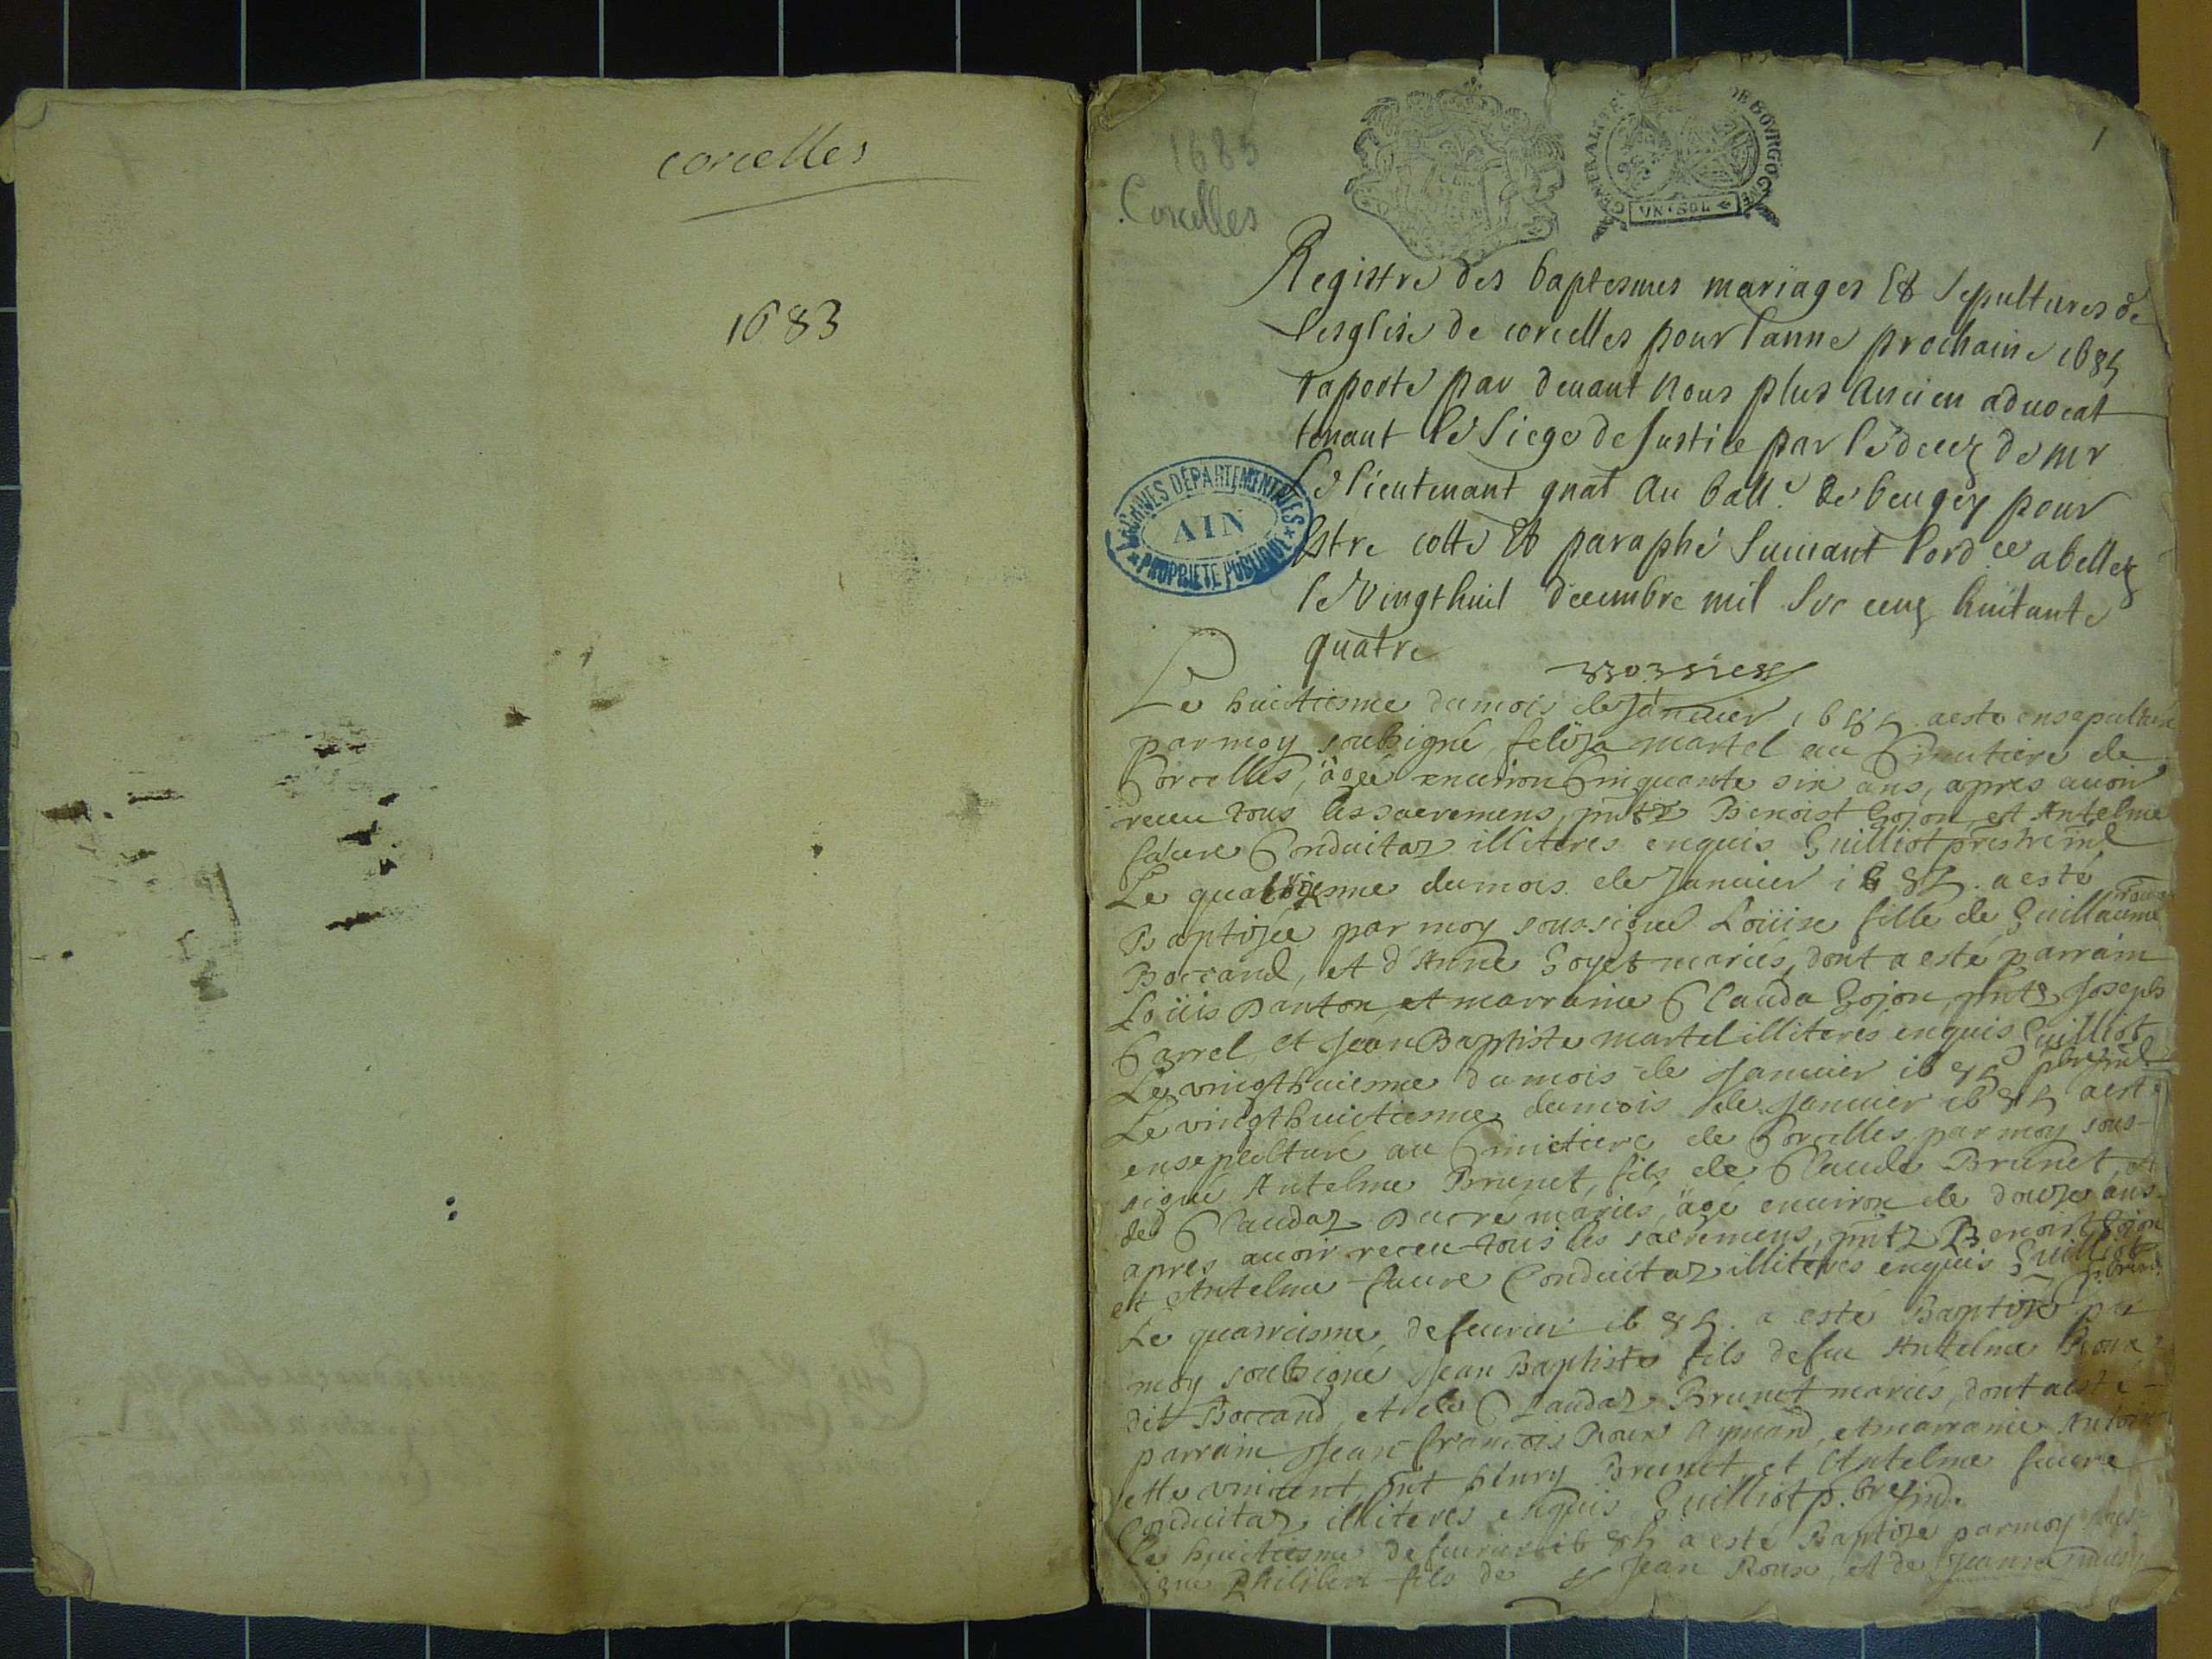 corcelles
1683
1685
Corcelles
GENERALITE DE BOVRGOGNE
VN·SOL
1
Registre des baptesmes mariages Et sepultures de
lesglise de corcelles pour lanne prochaine 1685
raporte par deuant nous plus ancien aduocat
tenant le siege de Justice par le decez de mr
Le lieutenant gnal au ball.e de beugey pour
Estre cotte Et paraphé suiuant lord.ce a belley
le vingthuit decembre mil six cens huitante
quatre
ARCHIVES DÉPARTEMENTALES
AIN
PROPRIETE PUBLIQUE
Le huictiesme du mois de Januier 1685 a esté ensepulturé
par moy soubsigné feliza martel au Cimetiere de
Corcelles, agée enuiron Cinquante six ans, apres auoir
receu tous les sacremens, pntz Benoist Gojon, et Antelme
faure Conduitaz illiteres enquis Guilliot prestre ind
Le quatorziesme du mois de Januier 1685. a esté
Baptisée par moy sous-signé Loüise fille de Guillaume roux
Boccand, et d'Anne Goyet mariés, dont a esté parrain
Loüis Danton, et marraine Clauda Gojon, pntz Joseph
Carrel et Jean Baptiste martel illiteres enquis Guilliot
Le vingthuiesme du mois de Januier 1685 pbre ind
Le vingthuictiesme du mois de Januier 1685 a esté
ensepulturé au Cimetiere de Corcelles par moy sous-
signé Antelme Brunet, fils de Claude Brunet, et
de Claudaz Ducré mariés, agé enuiron de douze ans
apres auoir receu tous les sacremens, pntz Benoist Gojon
et Antelme faure Conduitaz illiteres enquis Guilliot
p.bre ind.
Le quatriesme de feurier 1685. a esté Baptisé par
moy soubsigné Jean Baptiste fils de feu Antelme Roux
dit Boccand, et de Claudaz Brunet mariés, dont a esté
parrain Jean françois Roux Aymard, et marraine Antoin
ette vincent, pnt henry Brunet et Antelme faure
Conduitaz illiteres enquis Guilliot p.bre ind.
Le huictiesme de feurier 1685 a esté Baptisé par moy sous-
signé Philibert fils de Jean Roux, et de Jeanne